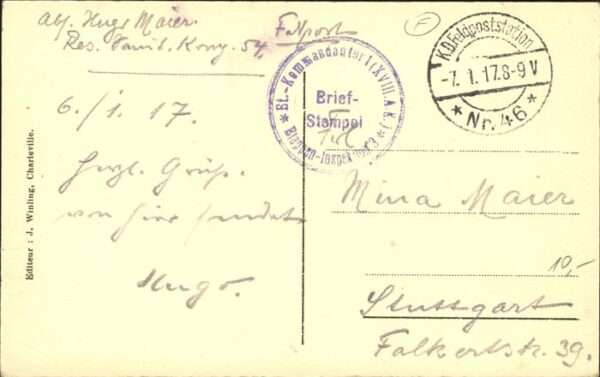 Abs. Hugo Maier
Res. Sanit. Komp. 54.
Feldpost
6./1. 17.
Herzl. Grüße
von hier sendet
Hugo.
Editeur : J. Winling, Charleville.
Et.-Kommandantur I (XVIII. A.K.)
Brief-
Stempel
Etappen-Inspektion 3
K.D.Feldpoststation
-7. 1. 17. 8-9 V
* Nr. 46 *
F
Mina Maier
10,-
Stuttgart
Falkertstr. 39.